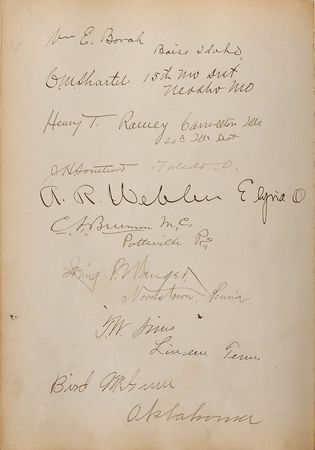 Wm E. Borah
Boise Idaho
C M Shartel 15th Mo Dist
Neosho Mo
Henry T. Rainey Carrollton Ills
20th Ills Dist
Toledo O.
A. R. Webber Elyria O
C. N. Brumm M.C.
Pottsville Pa,
Irving P. Wanger
Norristown, Penna
T. W. Sims
Linden Tenn.
Bird McGuire
Oklahoma